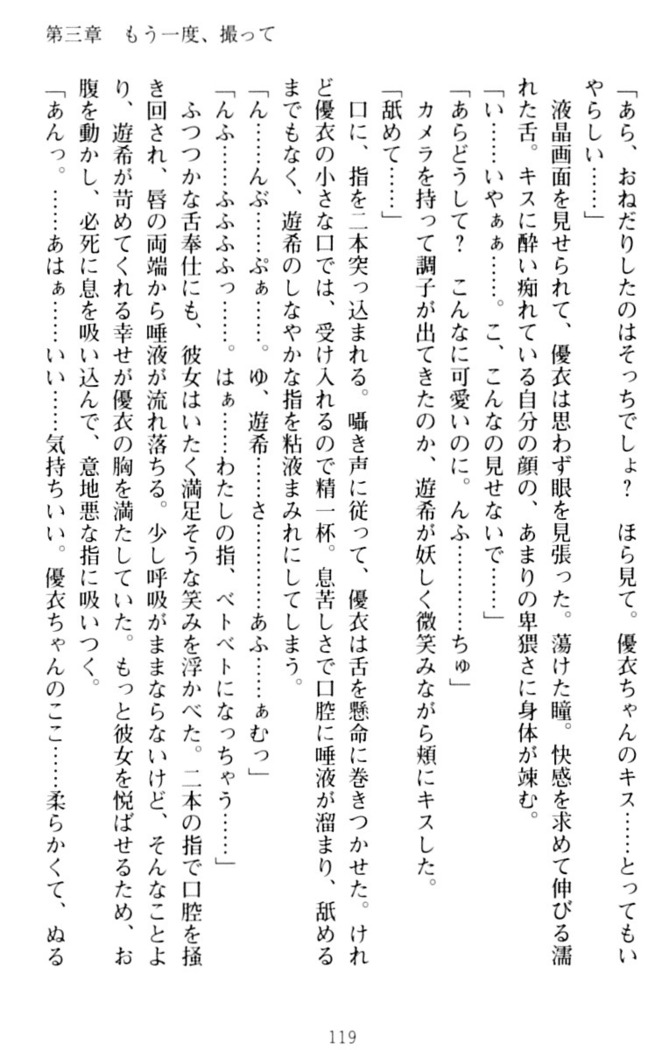 第三章　もう一度、撮って
「あら、おねだりしたのはそっちでしょ？　ほら見て。優衣ちゃんのキス……とってもい
やらしい……」
　液晶画面を見せられて、優衣は思わず眼を見張った。蕩けた瞳。快感を求めて伸びる濡
れた舌。キスに酔い痴れている自分の顔の、あまりの卑猥さに身体が竦む。
「い……いやぁぁ……。こ、こんなの見せないで……」
「あらどうして？　こんなに可愛いのに。んふ…………ちゅ」
　カメラを持って調子が出てきたのか、遊希が妖しく微笑みながら頬にキスした。
「舐めて……」
　口に、指を二本突っ込まれる。囁き声に従って、優衣は舌を懸命に巻きつかせた。けれ
ど優衣の小さな口では、受け入れるので精一杯。息苦しさで口腔に唾液が溜まり、舐める
までもなく、遊希のしなやかな指を粘液まみれにしてしまう。
「ん……んぶ……ぷぁ……。ゆ、遊希……さ…………あふ……ぁむっ」
「んふ……ふふふふっ……。はぁ……わたしの指、ベトベトになっちゃう……」
　ふつつかな舌奉仕にも、彼女はいたく満足そうな笑みを浮かべた。二本の指で口腔を掻
き回され、唇の両端から唾液が流れ落ちる。少し呼吸がままならないけど、そんなことよ
り、遊希が苛めてくれる幸せが優衣の胸を満たしていた。もっと彼女を悦ばせるため、お
腹を動かし、必死に息を吸い込んで、意地悪な指に吸いつく。
「あんっ。……あはぁ……いい……気持ちいい。優衣ちゃんのここ……柔らかくて、ぬる
119